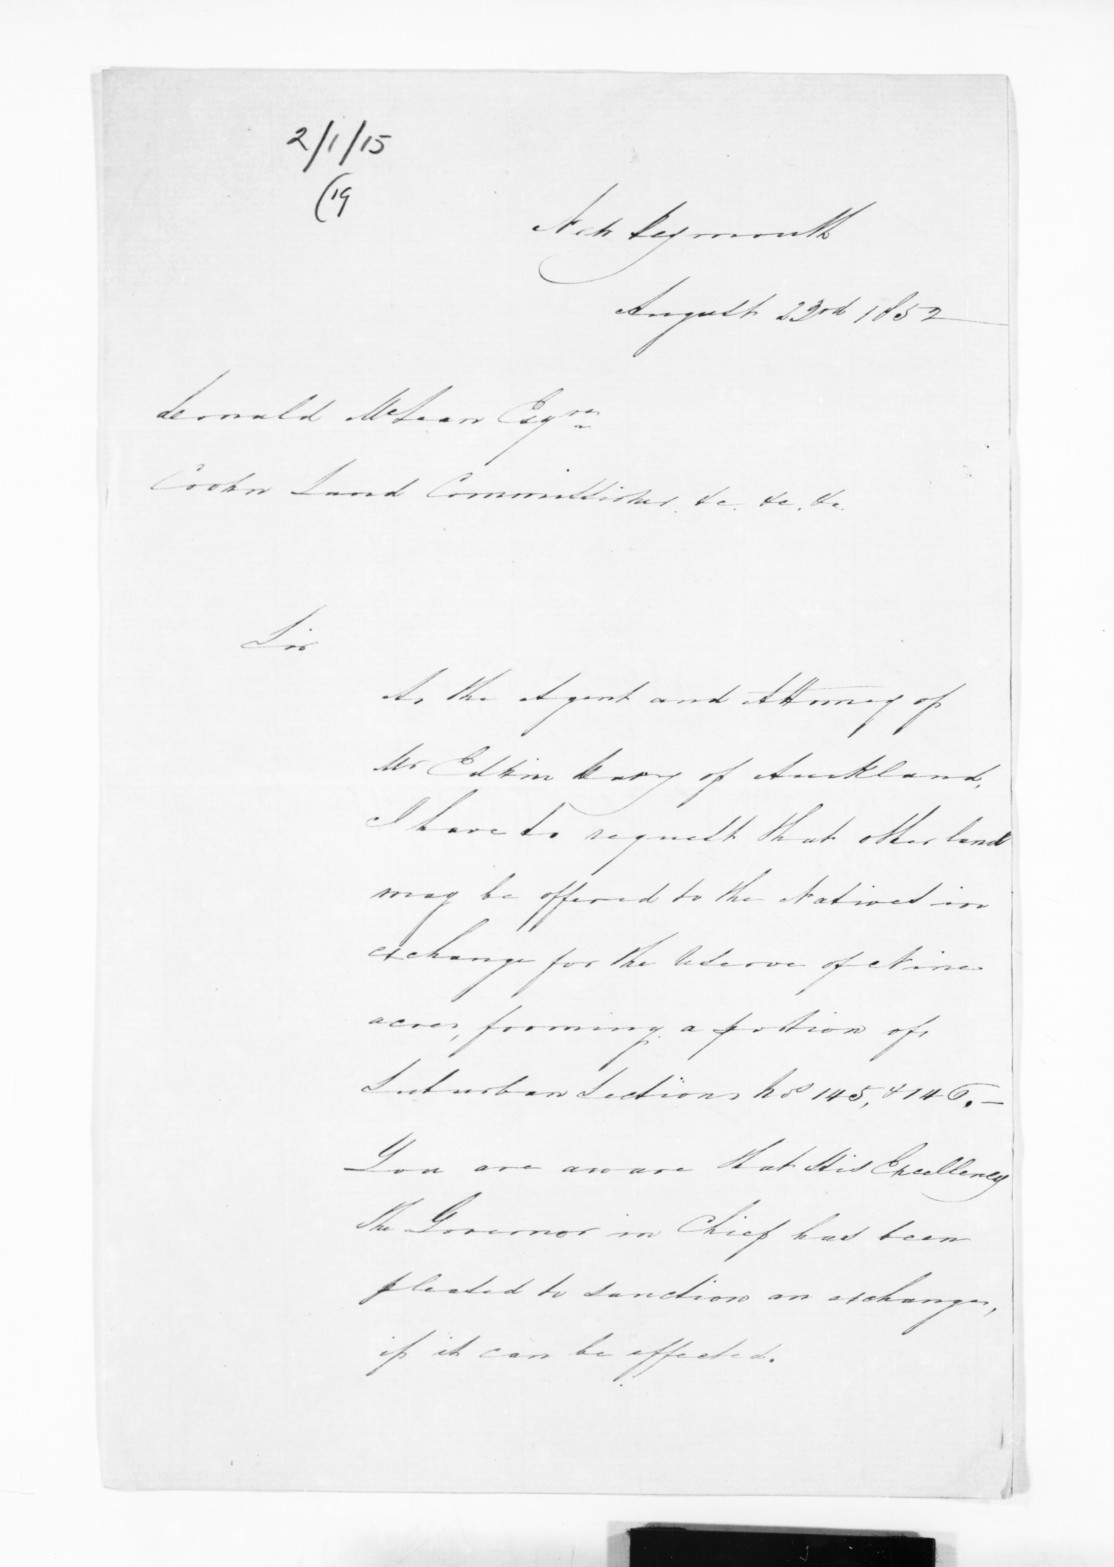 2/1/15
(19
New Plymouth
August 23rd 1852
Donald McLean Esqre
Land Commissioner &c. &c. &c.
Sir
As the Agent and Attorney of
Mr Edwin of Auckland,
I have to request that other land
may be offered to the Natives in
exchange for the Reserve of Nine
acres, forming a portion of
Suburban Sections Nos 145, & 146. —
You are aware that His Excellency
the Governor in Chief has been
pleased to sanction an exchange,
if it can be effected.